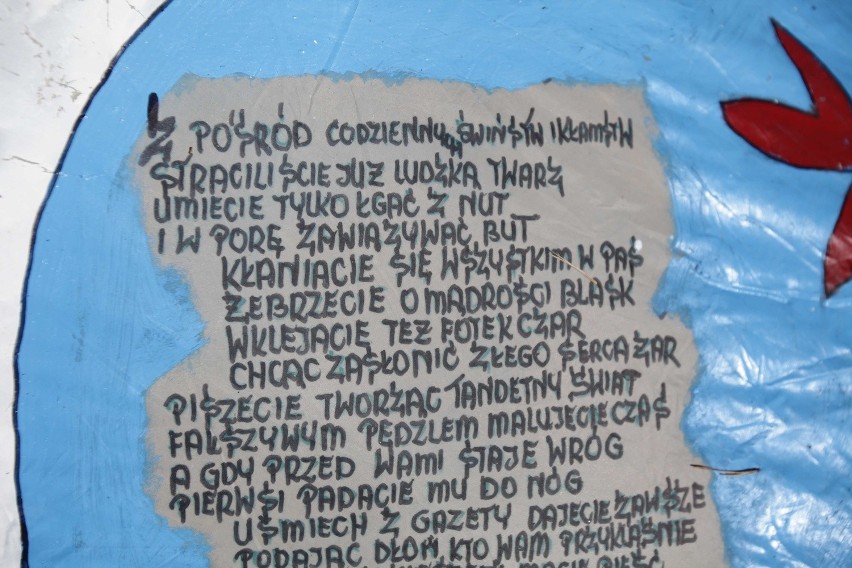 Z POŚRÓD CODZIENNYCH ŚWIŃSTW I KŁAMSTW
STRACILIŚCIE JUŻ LUDZKĄ TWARZ
UMIECIE TYLKO ŁGAĆ Z NUT
I W PORĘ ZAWIĄZYWAĆ BUT
KŁANIACIE SIĘ WSZYSTKIM W PAS
ŻEBRZECIE O MĄDROŚCI BLASK
WKLEJACIE TEŻ FOTEK CZAR
CHCĄC ZASŁONIĆ ZŁEGO SERCA ŻAR
PISZECIE TWORZĄC TANDETNY ŚWIAT
FAŁSZYWYM PĘDZLEM MALUJECIE CZAS
A GDY PRZED WAMI STAJE WRÓG
PIERWSI PADACIE MU DO NÓG
UŚMIECH Z GAZETY DAJECIE ZAWSZE
PODAJĄC DŁOŃ, KTO WAM PRZYKLAŚNIE
MACIE PIĘŚĆ